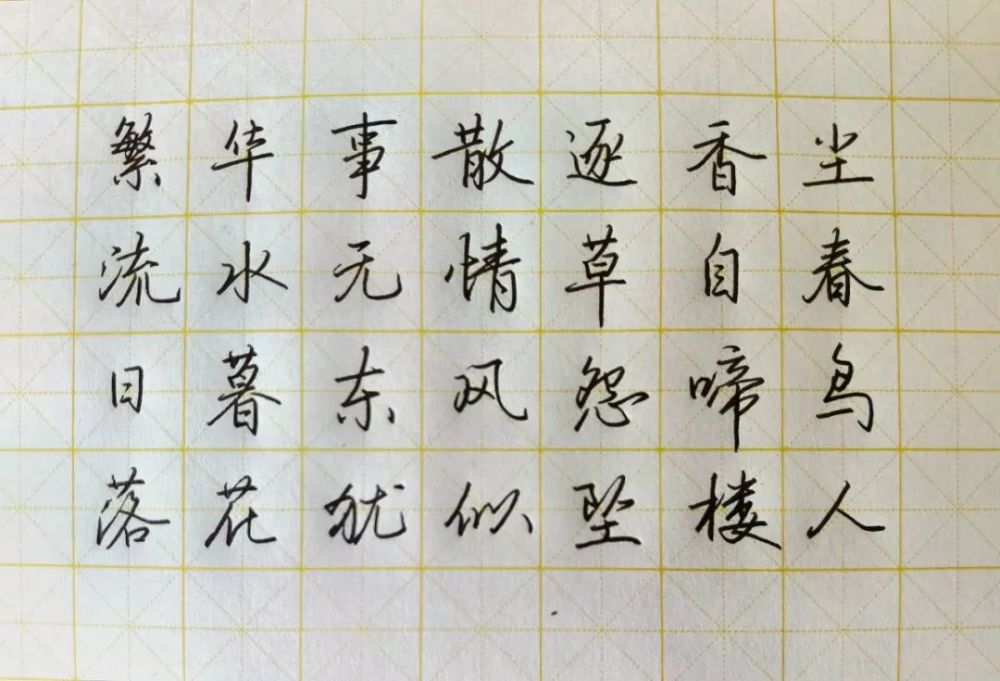 繁华事散逐香尘
流水无情草自春
日暮东风怨啼鸟
落花犹似坠楼人